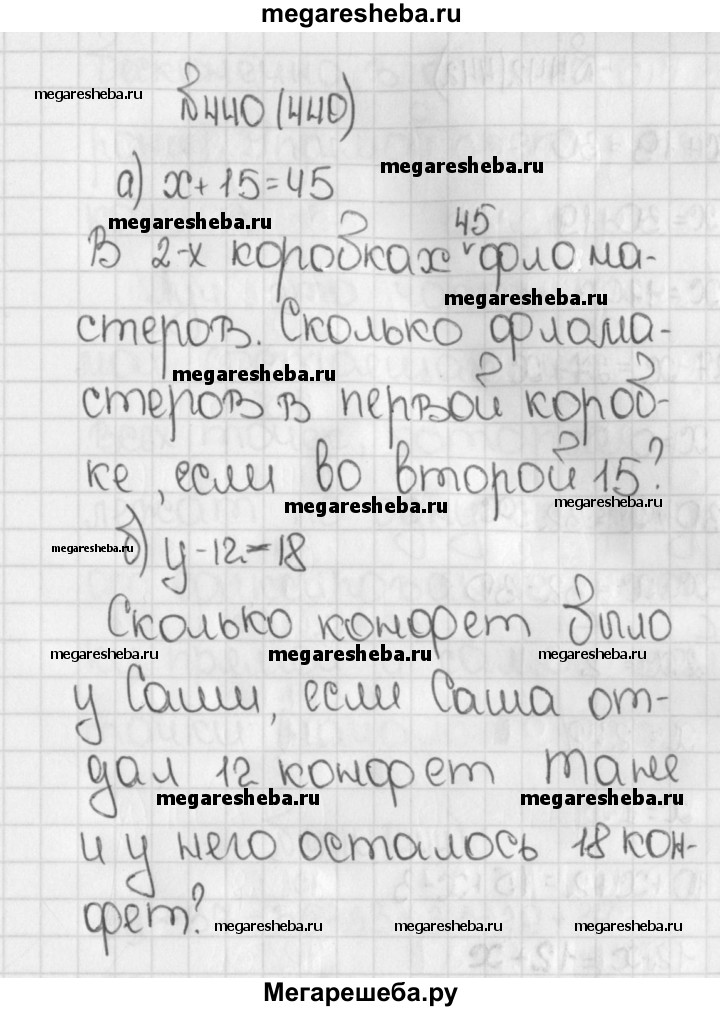 megaresheba.ru
megaresheba.ru
№440 (440)
megaresheba.ru
а) x + 15 = 45
megaresheba.ru
45
В 2-х коробках v флома-
megaresheba.ru
стеров. Сколько флама-
megaresheba.ru
стеров в первой короб-
ке, если во второй 15?
megaresheba.ru
megaresheba.ru
megaresheba.ru
б) y - 12 = 18
Сколько конфет было
megaresheba.ru
megaresheba.ru
megaresheba.ru
у Саши, если Саша от-
дал 12 конфет Тане
megaresheba.ru
megaresheba.ru
и у него осталось 18 кон-
фет?
megaresheba.ru
megaresheba.ru
megaresheba.ru
Мегарешеба.ру